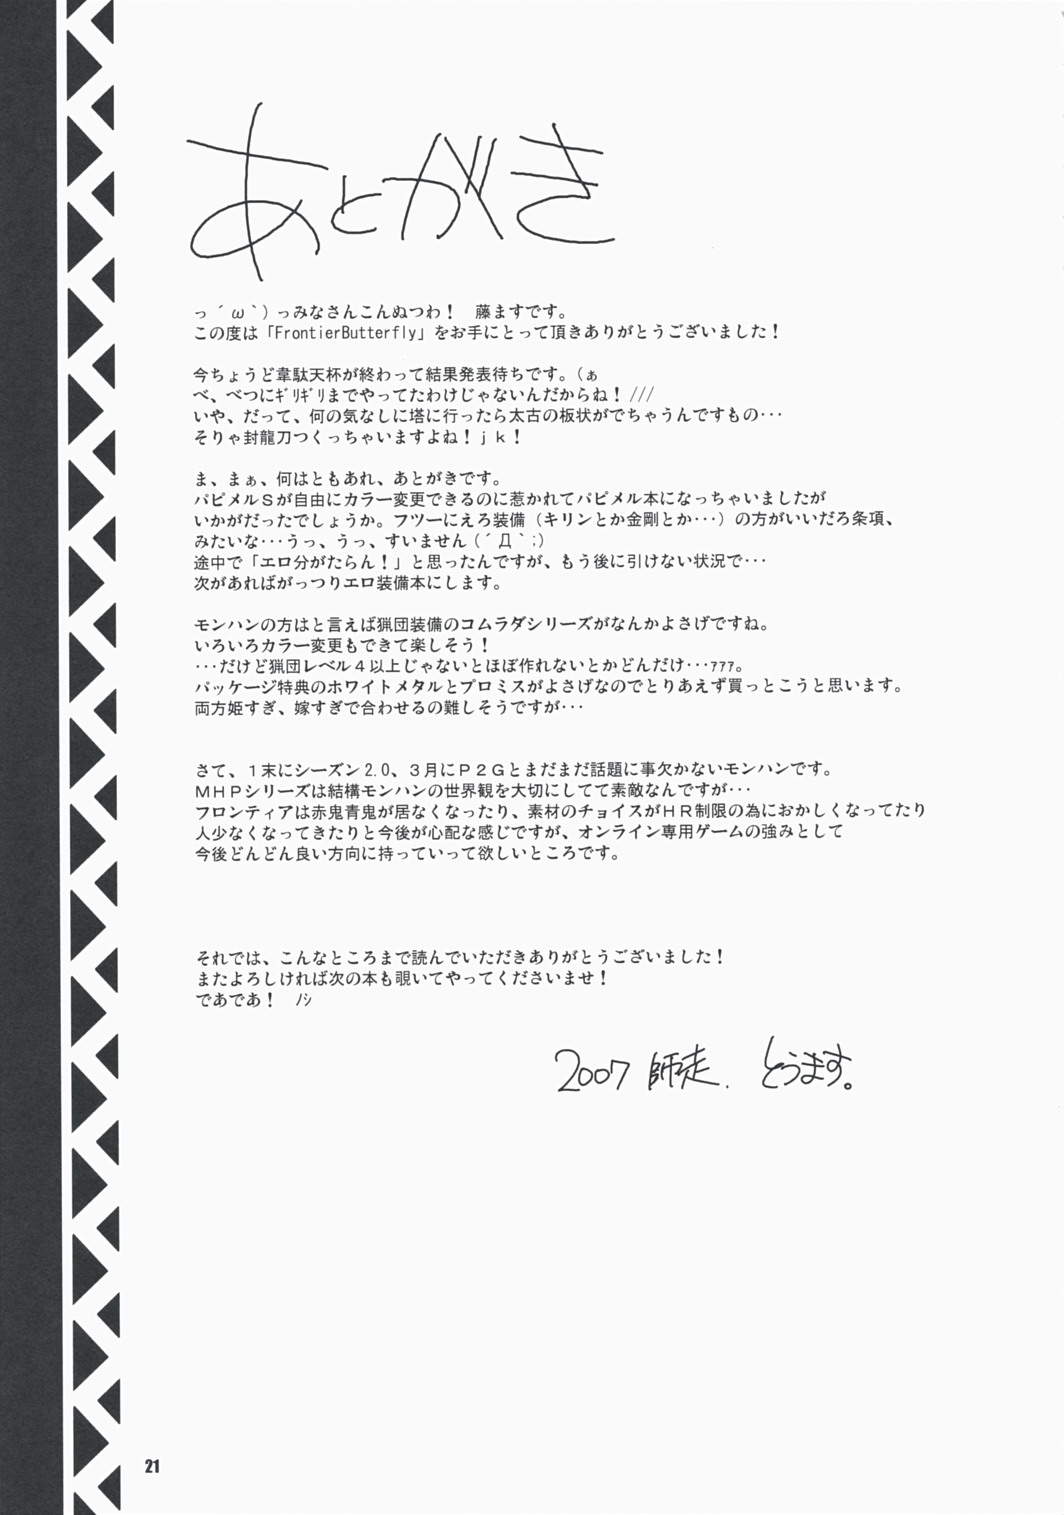 あとがき
っ´ω`)っみなさんこんぬつわ！　藤ますです。
この度は「FrontierButterfly」をお手にとって頂きありがとうございました！
今ちょうど韋駄天杯が終わって結果発表待ちです。(ぁ
べ、べつにｷﾞﾘｷﾞﾘまでやってたわけじゃないんだからね！///
いや、だって、何の気なしに塔に行ったら太古の板状がでちゃうんですもの･･･
そりゃ封龍刀つくっちゃいますよね！ｊｋ！
ま、まぁ、何はともあれ、あとがきです。
パピメルＳが自由にカラー変更できるのに惹かれてパピメル本になっちゃいましたが
いかがだったでしょうか。フツーにえろ装備（キリンとか金剛とか･･･）の方がいいだろ条項、
みたいな･･･うっ、うっ、すいません(´Д`;)
途中で「エロ分がたらん！」と思ったんですが、もう後に引けない状況で･･･
次があればがっつりエロ装備本にします。
モンハンの方はと言えば猟団装備のコムラダシリーズがなんかよさげですね。
いろいろカラー変更もできて楽しそう！
･･･だけど猟団レベル４以上じゃないとほぼ作れないとかどんだけ･･･ｱｱｱ。
パッケージ特典のホワイトメタルとプロミスがよさげなのでとりあえず買っとこうと思います。
両方姫すぎ、嫁すぎで合わせるの難しそうですが･･･
さて、１末にシーズン2.0、３月にＰ２Ｇとまだまだ話題に事欠かないモンハンです。
ＭＨＰシリーズは結構モンハンの世界観を大切にしてて素敵なんですが･･･
フロンティアは赤鬼青鬼が居なくなったり、素材のチョイスがＨＲ制限の為におかしくなってたり
人少なくなってきたりと今後が心配な感じですが、オンライン専用ゲームの強みとして
今後どんどん良い方向に持っていって欲しいところです。
それでは、こんなところまで読んでいただきありがとうございました！
またよろしければ次の本も覗いてやってくださいませ！
であであ！　ﾉｼ
2007 師走. とうます。
21